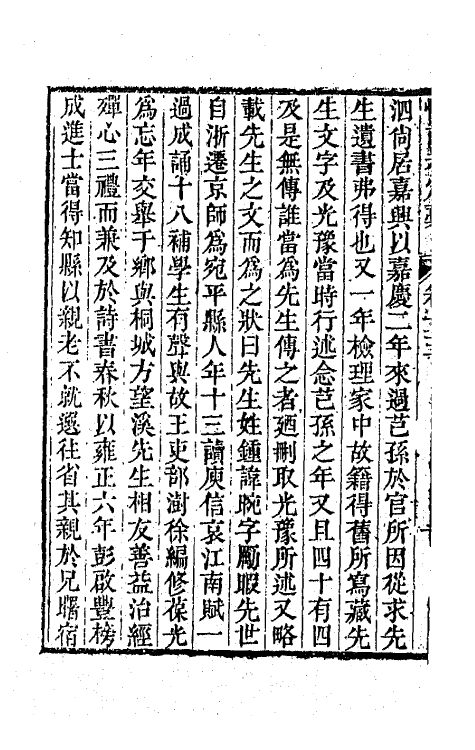 泗尙居嘉興以嘉慶二年來過芑孫於官所因從求先
生遺書弗得也又一年檢理家中故籍得舊所寫藏先
生文字及光豫當時行述念芑孫之年又且四十有四
及是無傳誰當爲先生傳之者廼刪取光豫所述又略
載先生之文而爲之狀曰先生姓鍾諱晼字勵暇先世
自浙遷京師爲宛平縣人年十三讀庾信哀江南賦一
過成誦十八補學生有聲與故王吏部澍徐編修葆光
爲忘年交舉于鄉與桐城方望溪先生相友善益治經
殫心三禮而兼及於詩書春秋以雍正六年彭啟豐榜
成進士當得知縣以親老不就選往省其親於兄曙宿